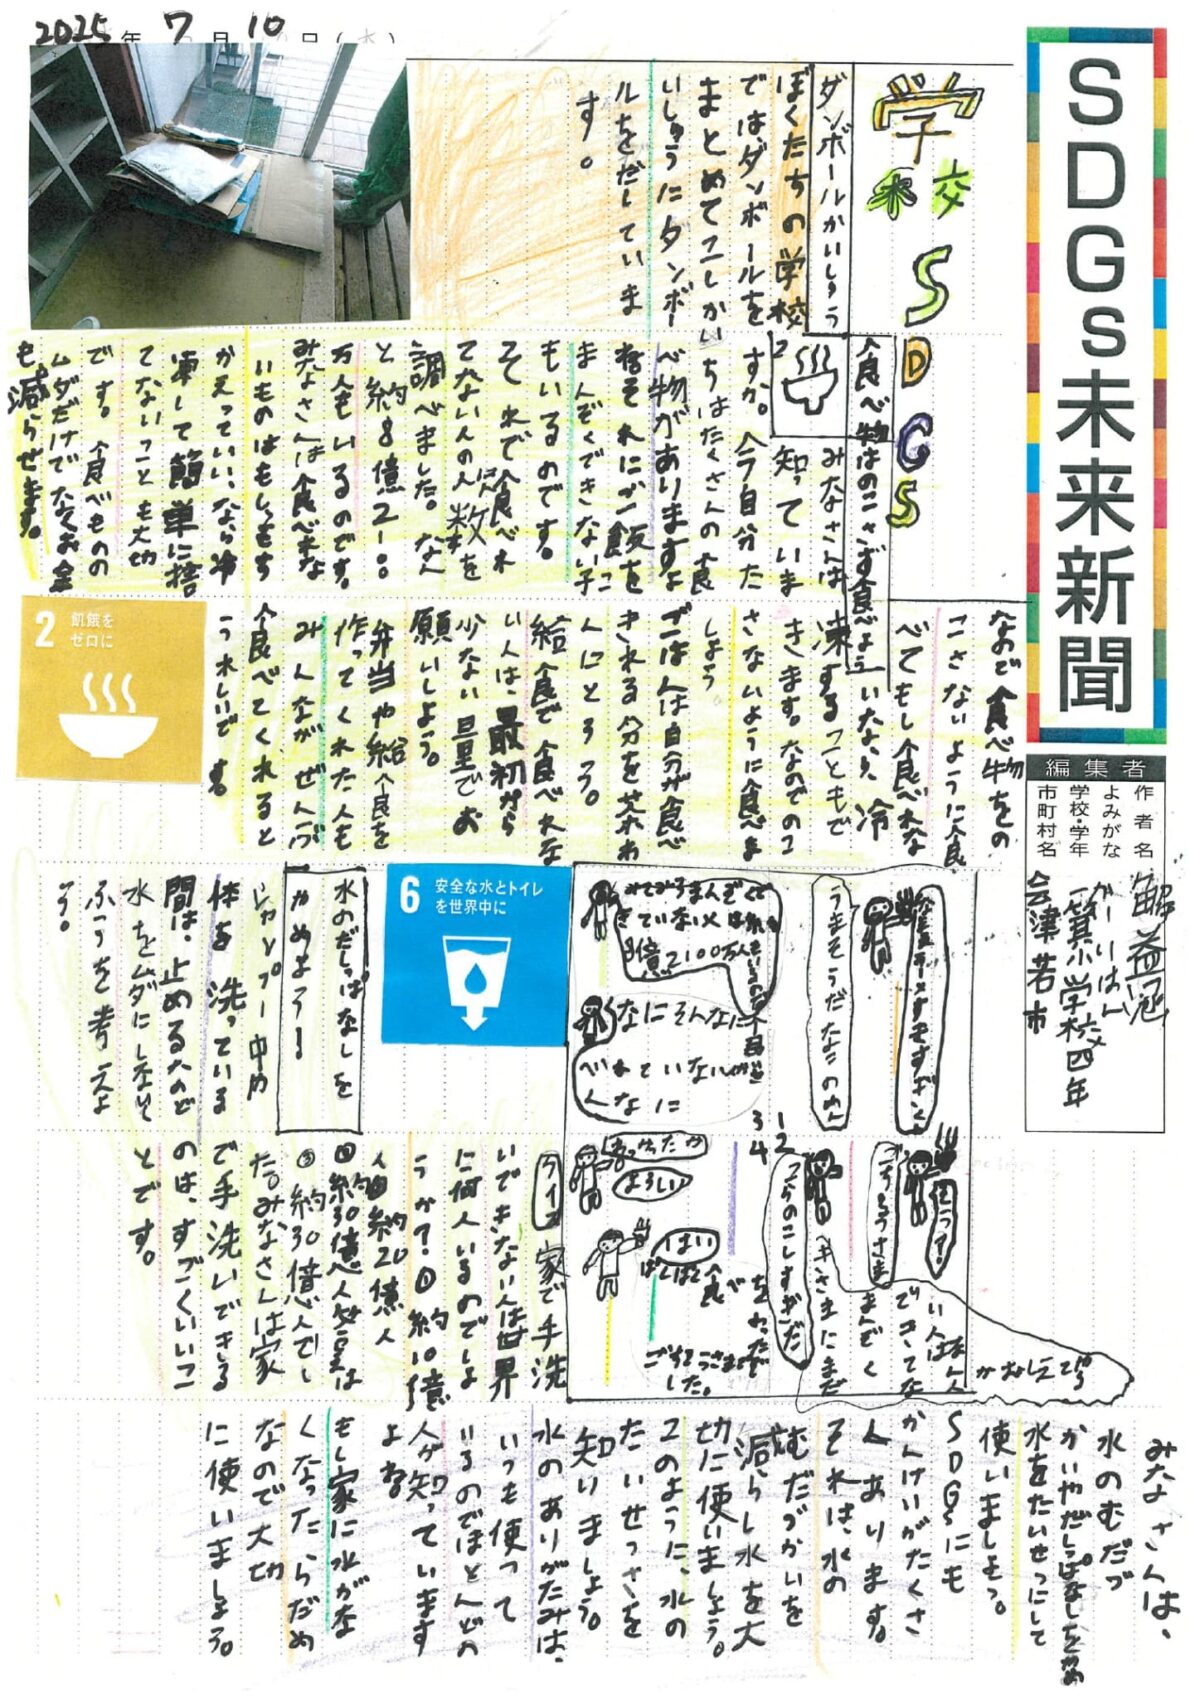 2025年7月10日(木)
SDGs未来新聞
編集者
作者名
よみがな
学校・学年
市町村名
かい いはん
一箕小学校 四年
会津若市
学校SDGS
ダンボールかいしゅう
ぼくたちの学校
ではダンボールを
まとめてこしかい
いしゅうにダンボー
ルをだしていま
す。
食べ物はのこさず食べよう
みなさんは
知っていま
すか。今自分た
ちはたくさんの食
べ物がありますよ
ねそれにご飯を
まんぞくできない子
もいるのです。
そこで食べれ
てない人の人数を
調べました。なん
と約8億2100
万人もいるのです。
みなさんは食べきな
いものはもしもち
かえっていいなら冷
凍して簡単に捨
てないことも大切
です。食べものの
ムダだけでなくお金
も減らせます。
なので食べ物をの
こさないように食
べてもし食べれな
いなら冷
凍することもで
きます。なのでのこ
さないように食べま
しょう
ごはんは自分が食べ
きれる分を茶わ
んにとろう。
給食で食べれな
い人は、最初から
少ない量でお
願いしよう。
弁当や給食を
作ってくれた人も
みんながぜんぶ
食べてくれると
うれしいです。
2 飢餓を
ゼロに
6 安全な水とトイレ
を世界中に
うまそうだな
なにそんなに
べれていない
人なに
1
2
3
4
よろしい
はい
ぱくぱく食べ
ごちそうさまで
した。
水のだしっぱなしを
やめよう!
シャンプー中や
体を洗っている
間は、止めるなど
水をムダにしない
ふうを考えよ
う。
クイズ 家で手洗
いできない人は世界
に何人いるのでしょ
うか?①約10億
人②約20億人
③約30億人答えは
③約30億人でし
た。みなさんは家
で手洗いできる
のは、すごくいいこ
とです。
みなさんは、
水のむだづ
かいやだしっぱなしをやめ
水をたいせつにして
使いましょう。
SDGsにも
かんけいがたくさ
んあります。
それは、水の
むだづかいを
減らし水を大
切に使いましょう。
このように、水の
たいせつさを
知りましょう。
水のありがたみは、
いつも使って
いるのでほとんどの
人が知っています
よね
もし家に水がな
くなったらだめ
なので大切
に使いましょう。